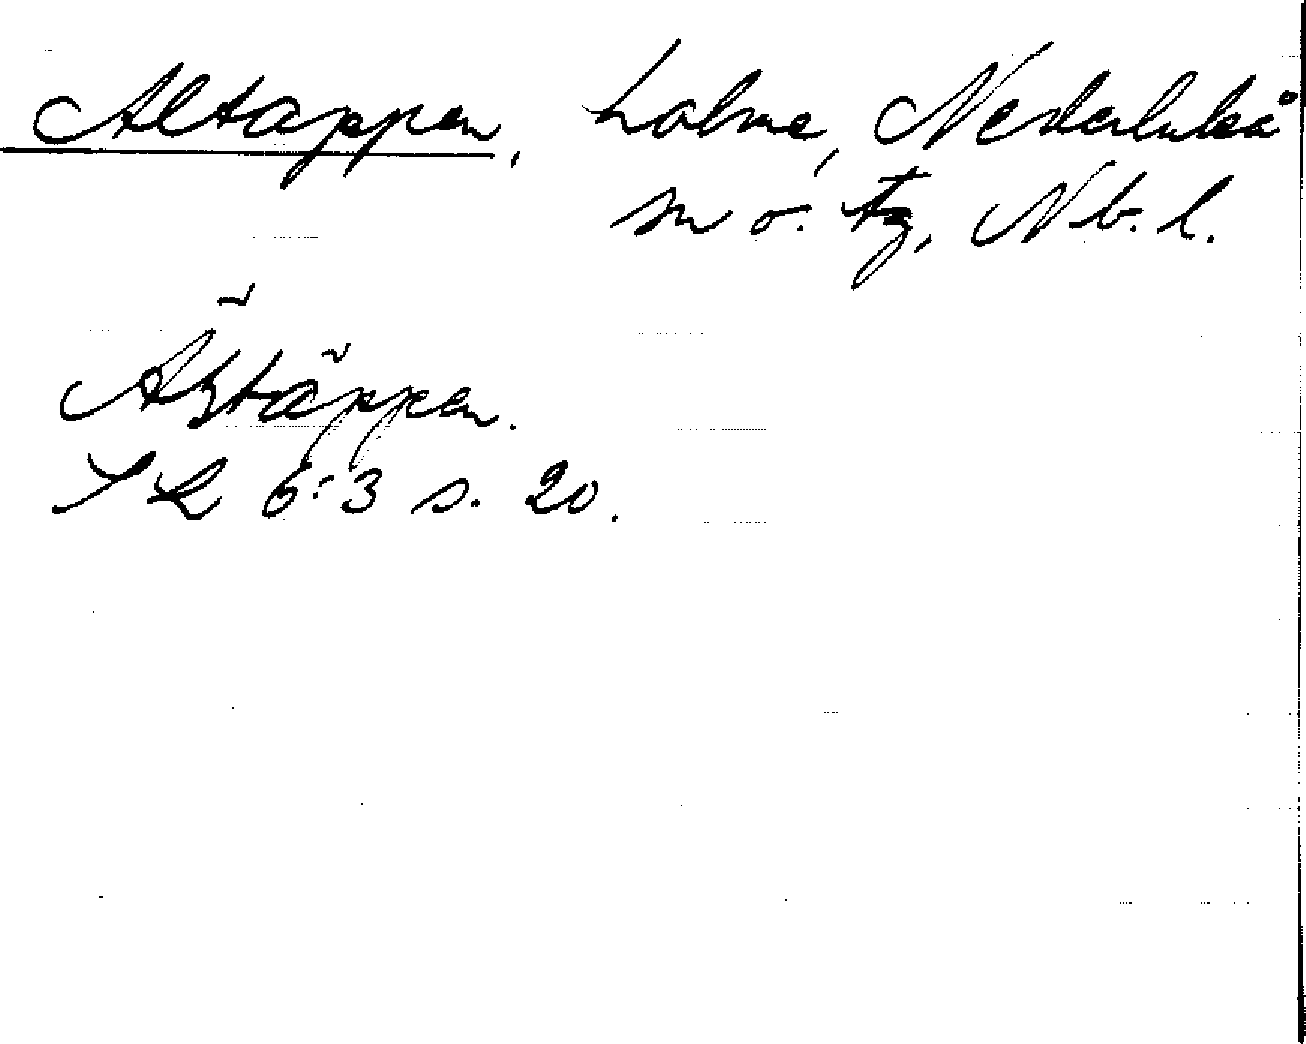 Altappen, holme, Nederluleå
sn o. tg, Nb. l.
Älstäppen.
SL 6:3 s. 20.